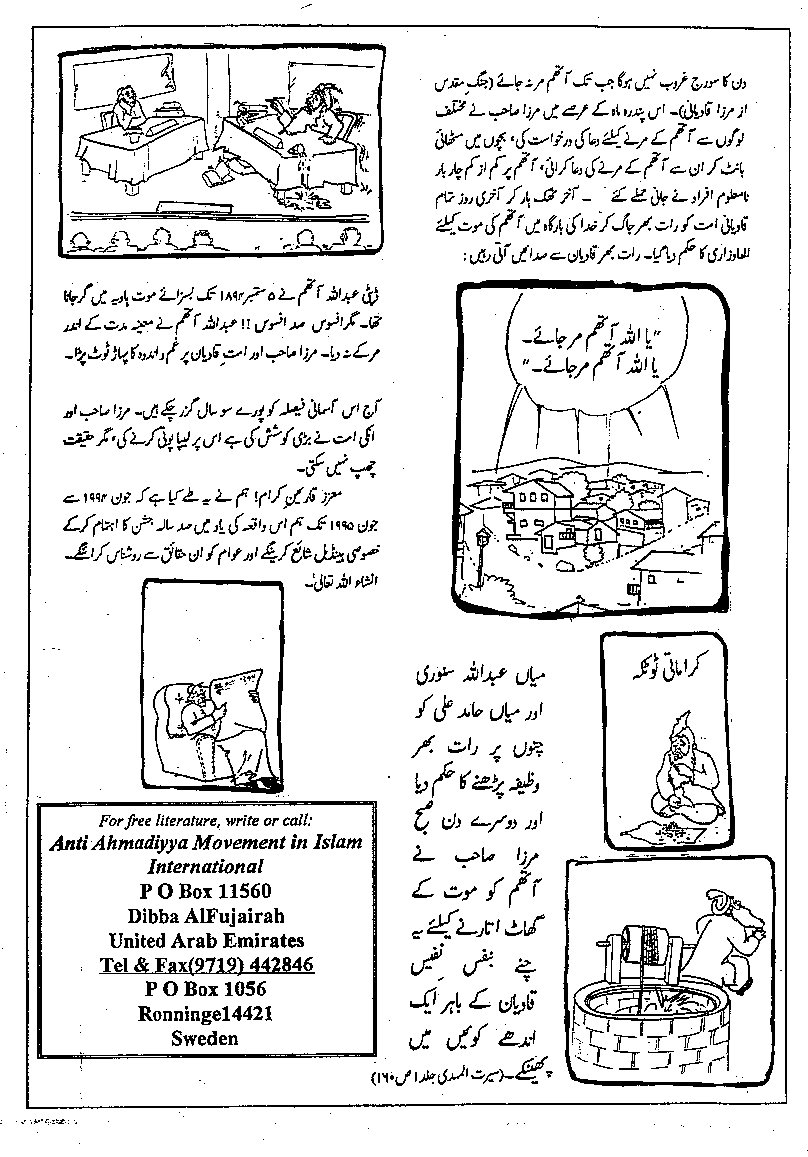 دن کا سورج غروب نہیں ہوگا جب تک آتھم مر نہ جائے (جنگ مقدس
از مرزا قادیانی)۔ اس پندرہ ماہ کے عرصے میں مرزا صاحب نے مختلف
لوگوں سے آتھم کے مرنے کیلئے دعا کی درخواست کی، بچوں میں مٹھائی
بانٹ کر ان سے آتھم کے مرنے کی دعا کرائی، آتھم پر کم از کم چار بار
نامعلوم افراد نے جانی حملے کئے ۔ آخر تھک ہار کر آخری روز تمام
قادیانی امت کو رات بھر جاگ کر خدا کی بارگاہ میں آتھم کی موت کیلئے
کا حکم دیا گیا۔ رات بھر قادیان سے صدائیں آتی رہیں:
"یا اللہ آتھم مر جائے۔
یا اللہ آتھم مر جائے۔"
کراماتی ٹوٹکہ
میاں عبداللہ سنوری
اور میاں حامد علی کو
چنوں پر رات بھر
وظیفہ پڑھنے کا حکم دیا
اور دوسرے دن صبح
مرزا صاحب نے
آتھم کو موت کے
گھاٹ اتارنے کیلئے یہ
چنے بنفس نفیس
قادیان کے باہر ایک
اندھے کنوئیں میں
پھینکے۔ (سیرت المہدی جلد ۱ ص ۱۶۰)
ڈپٹی عبداللہ آتھم نے ۵ ستمبر ۱۸۹۴ تک بسزائے موت ہاویہ میں گر جانا
تھا۔ مگر افسوس صد افسوس !! عبداللہ آتھم نے معینہ مدت کے اندر
مر کے نہ دیا۔ مرزا صاحب اور امت قادیان پر غم و اندوہ کا پہاڑ ٹوٹ پڑا۔
آج اس آسمانی فیصلہ کو پورے سو سال گزر چکے ہیں۔ مرزا صاحب اور
انکی امت نے بڑی کوشش کی ہے اس پر لیپا پوتی کرنے کی، مگر حقیقت
چھپ نہیں سکتی۔
معزز قارئین کرام! ہم نے یہ طے کیا ہے کہ جون ۱۹۹۴ سے
جون ۱۹۹۵ تک ہم اس واقعہ کی یاد میں صد سالہ جشن کا اہتمام کر کے
خصوصی ہینڈبل شائع کرینگے اور عوام کو ان حقائق سے روشناس کرائینگے۔
انشاء اللہ تعالیٰ۔
For free literature, write or call:
Anti Ahmadiyya Movement in Islam
International
P O Box 11560
Dibba AlFujairah
United Arab Emirates
Tel & Fax(9719) 442846
P O Box 1056
Ronninge14421
Sweden